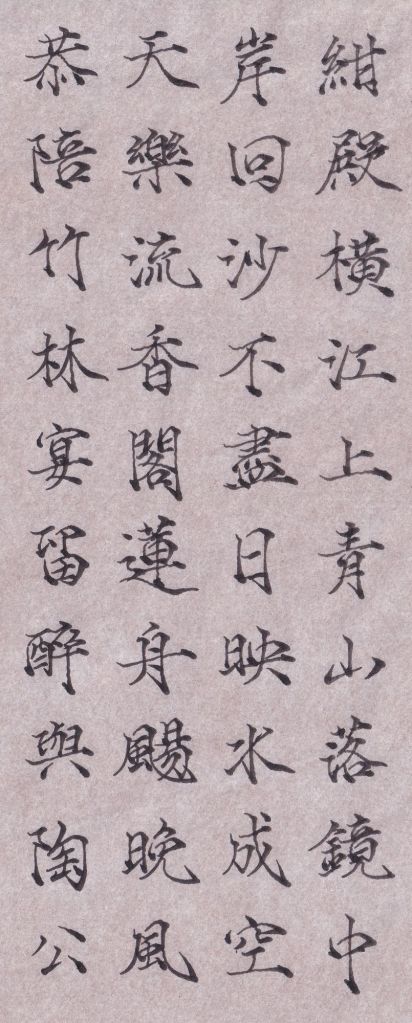 紺殿橫江上青山落鏡中
岸回沙不盡日映水成空
天樂流香閣蓮舟颺晚風
恭陪竹林宴留醉與陶公